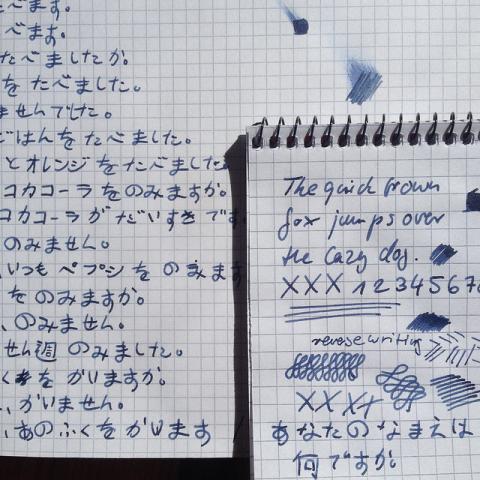 たべます。
べます。
たべましたか。
をたべました。
ませんでした。
ごはんをたべました。
とオレンジをたべました
コカコーラをのみますか。
コカコーラがだいすきです
のみません。
いつもペプシをのみます
をのみますか。
、のみません。
せん週のみました。
をかいますか。
、かいません。
、あのふくをかいます
The quick brown
fox jumps over
the lazy dog.
XXX 1234567
reverse writing
XXXX
あなたのなまえは
何ですか。